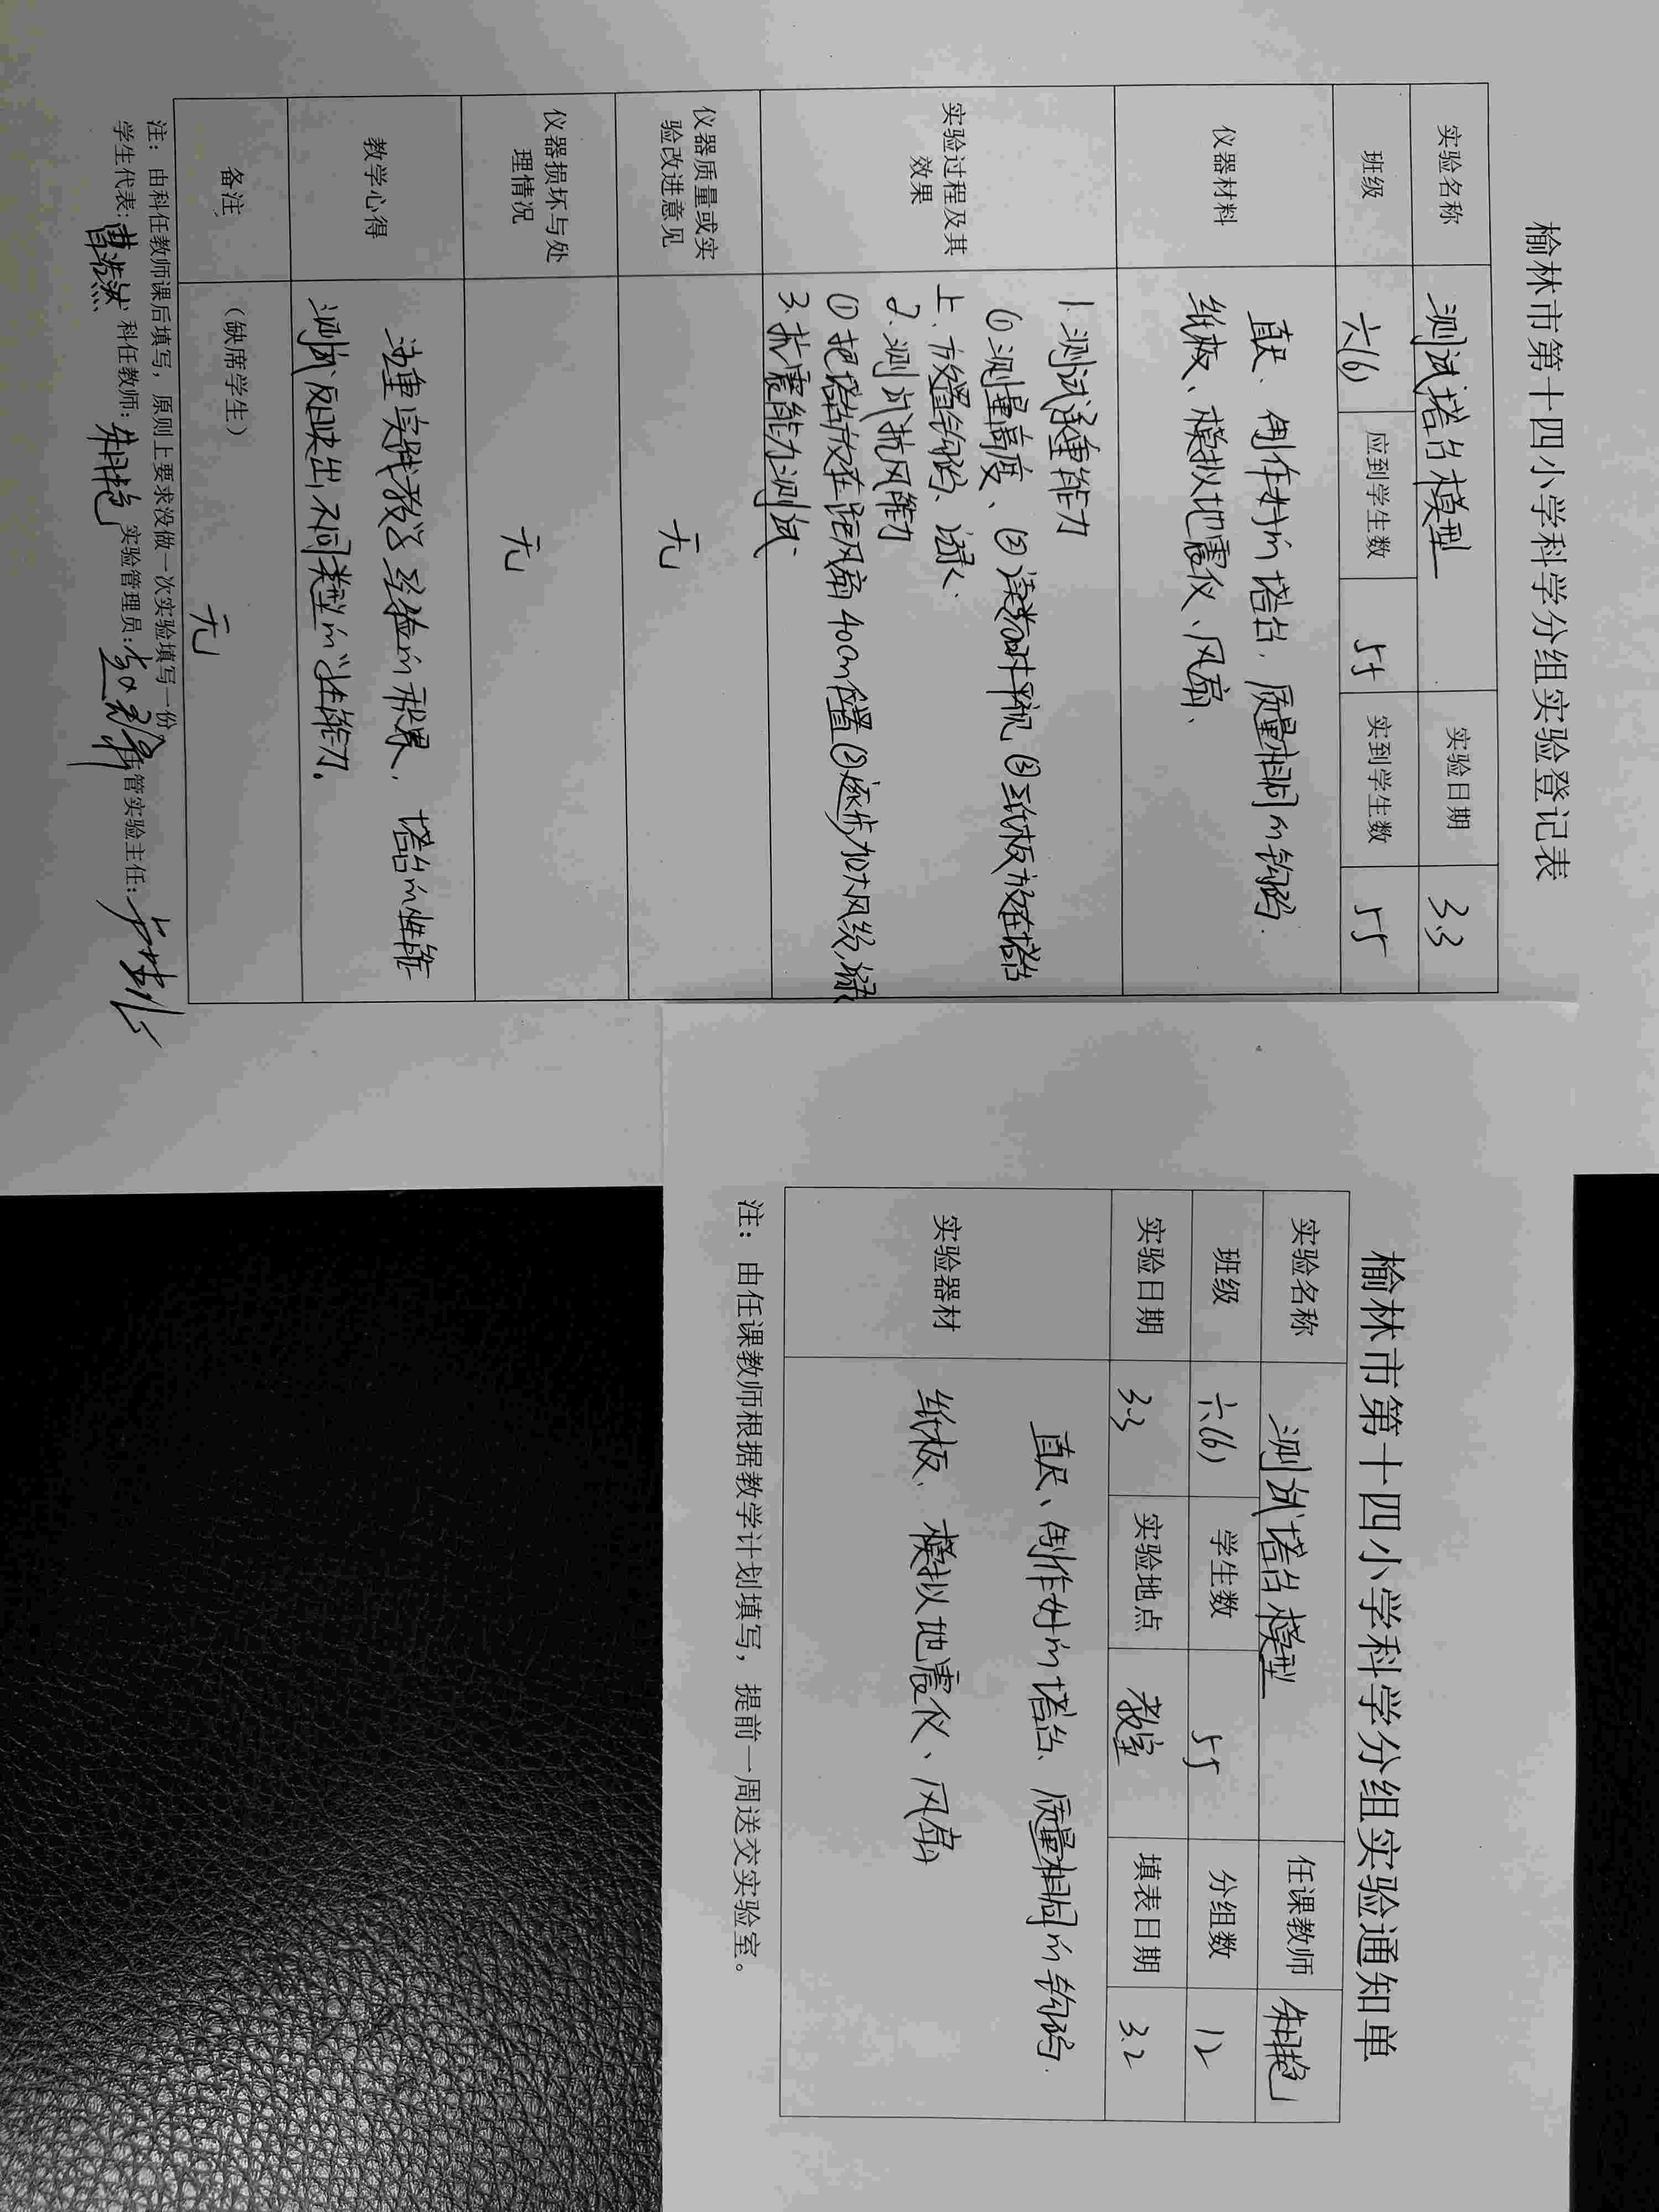 榆林市第十四小学科学分组实验登记表
实验名称 测试塔台模型 实验日期 3.3
班级 六(6) 应到学生数 55 实到学生数 55
仪器材料
直尺、制作好的塔台、质量相同的钩码、
纸板、模拟地震仪、风扇、
实验过程及其
效果
1.测试承重能力
①测量高度、②读数时平视 ③纸板放在塔台
上、放置钩码、记录、
2.测试抗风能力
①把塔台放在距风扇40cm位置②逐步加大风级,记录
3.抗震能力测试、
仪器质量或实
验改进意见
无
仪器损坏与处
理情况
无
教学心得
注重实践教学经验的积累, 塔台的性能
测试反映出不同类型的性能力。
备注 (缺席学生)
无
注: 由科任教师课后填写, 原则上要求没做一次实验填写一份。
学生代表: 科任教师: 朱艳 实验管理员: 主管实验主任:
榆林市第十四小学科学分组实验通知单
实验名称 测试塔台模型 任课教师 朱艳
班级 六(6) 学生数 55 分组数 12
实验日期 3.3 实验地点 教室 填表日期 3.2
实验器材
直尺、制作好的塔台、质量相同的钩码、
纸板、模拟地震仪、风扇
注: 由任课教师根据教学计划填写, 提前一周送交实验室。